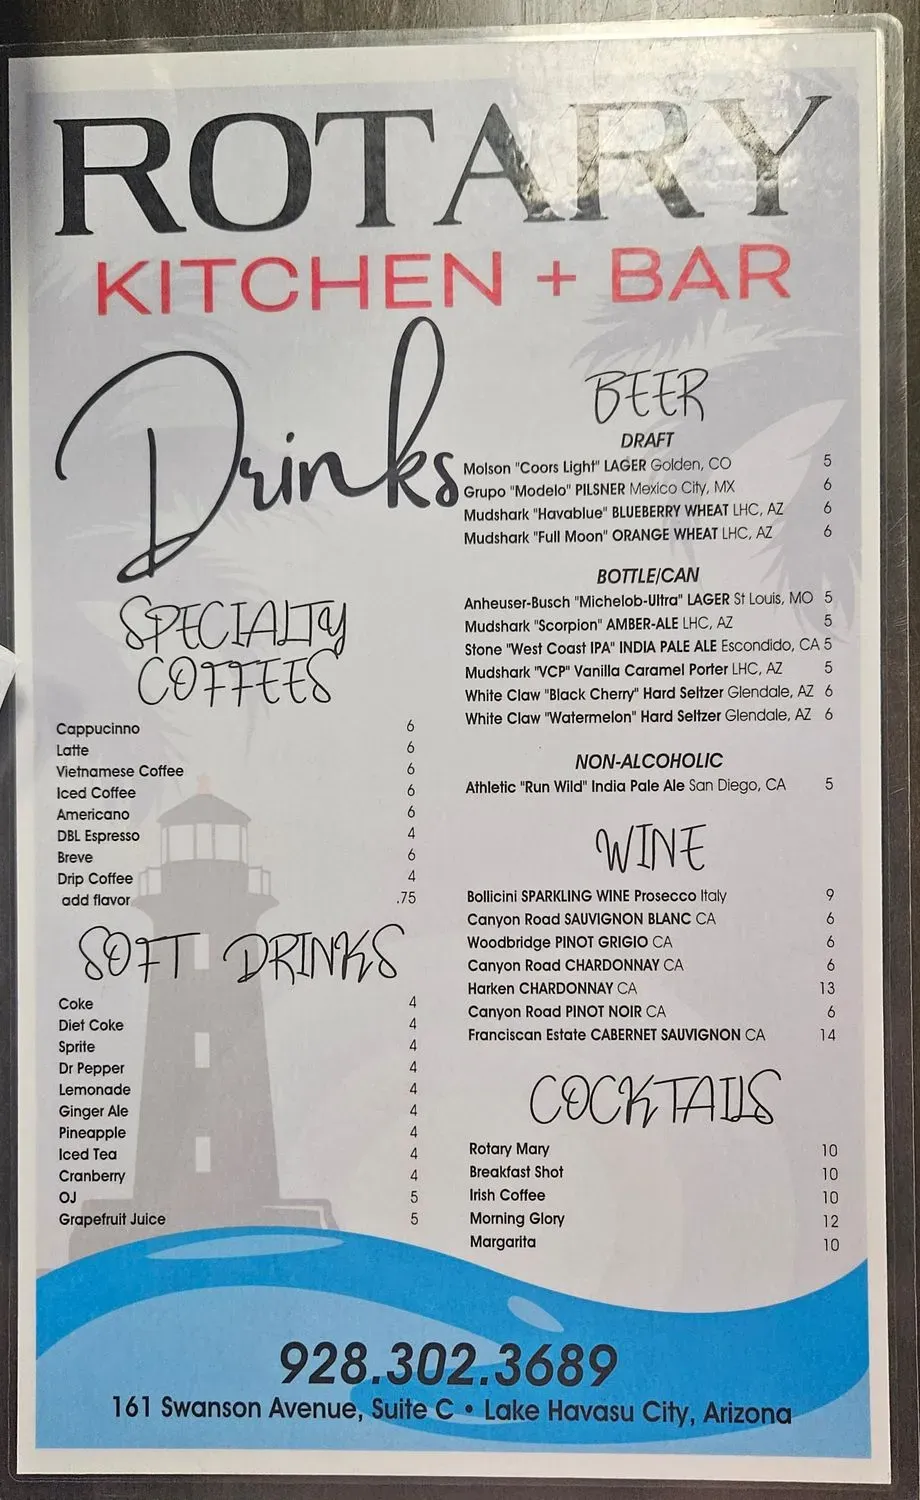 ROTARY
KITCHEN + BAR
Drinks
SPECIALTY
COFFEES
Cappucinno 6
Latte 6
Vietnamese Coffee 6
Iced Coffee 6
Americano 6
DBL Espresso 4
Breve 6
Drip Coffee 4
add flavor .75
SOFT DRINKS
Coke 4
Diet Coke 4
Sprite 4
Dr Pepper 4
Lemonade 4
Ginger Ale 4
Pineapple 4
Iced Tea 4
Cranberry 4
OJ 5
Grapefruit Juice 5
BEER
DRAFT
Molson "Coors Light" LAGER Golden, CO 5
Grupo "Modelo" PILSNER Mexico City, MX 6
Mudshark "Havablue" BLUEBERRY WHEAT LHC, AZ 6
Mudshark "Full Moon" ORANGE WHEAT LHC, AZ 6
BOTTLE/CAN
Anheuser-Busch "Michelob-Ultra" LAGER St Louis, MO 5
Mudshark "Scorpion" AMBER-ALE LHC, AZ 5
Stone "West Coast IPA" INDIA PALE ALE Escondido, CA 5
Mudshark "VCP" Vanilla Caramel Porter LHC, AZ 5
White Claw "Black Cherry" Hard Seltzer Glendale, AZ 6
White Claw "Watermelon" Hard Seltzer Glendale, AZ 6
NON-ALCOHOLIC
Athletic "Run Wild" India Pale Ale San Diego, CA 5
WINE
Bollicini SPARKLING WINE Prosecco Italy 9
Canyon Road SAUVIGNON BLANC CA 6
Woodbridge PINOT GRIGIO CA 6
Canyon Road CHARDONNAY CA 6
Harken CHARDONNAY CA 13
Canyon Road PINOT NOIR CA 6
Franciscan Estate CABERNET SAUVIGNON CA 14
COCKTAILS
Rotary Mary 10
Breakfast Shot 10
Irish Coffee 10
Morning Glory 12
Margarita 10
928.302.3689
161 Swanson Avenue, Suite C • Lake Havasu City, Arizona